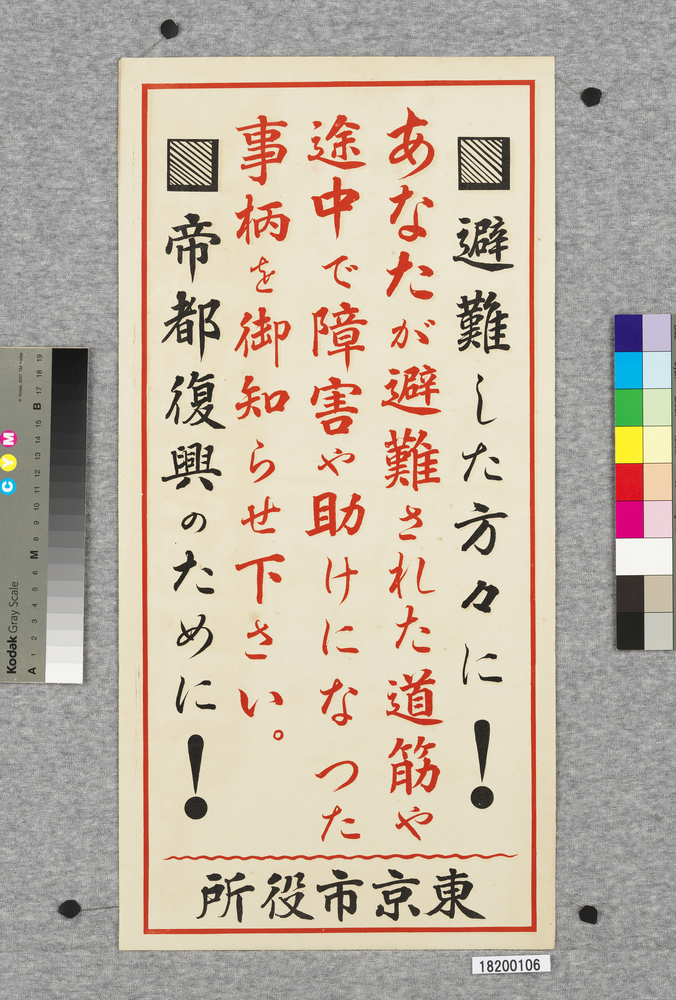 避難した方々に！
あなたが避難された道筋や
途中で障害や助けになつた
事柄を御知らせ下さい。
帝都復興のために！
所役市京東
18200106
Kodak Gray Scale
C Y M
A 1 2 3 4 5 6 M 8 9 10 11 12 13 14 15 B 17 18 19